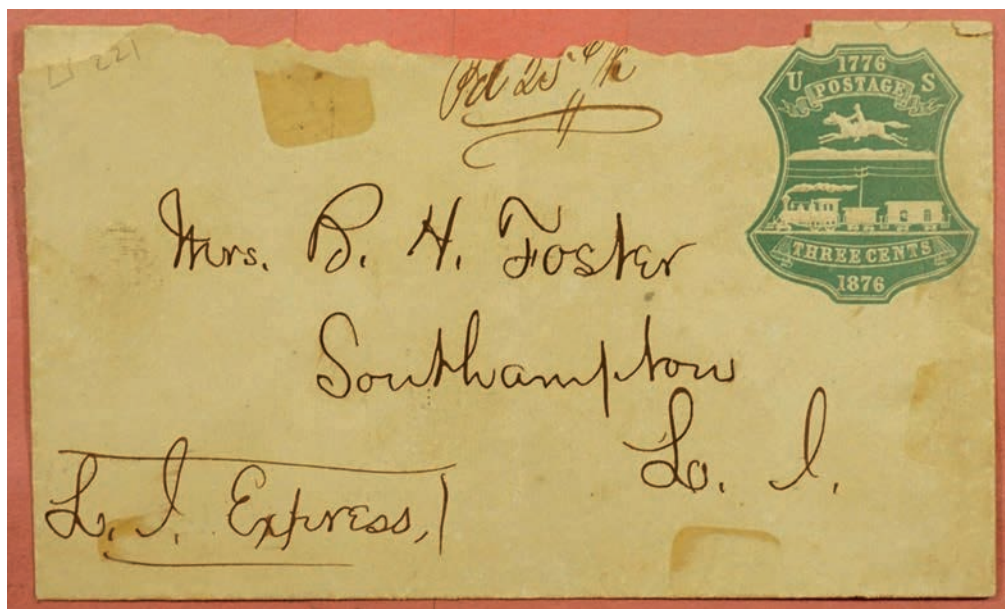 U 221
Pd 25 c/h
1776
U POSTAGE S
THREE CENTS
1876
Mrs. B. H. Foster
Southampton
L. I.
L. I. Express,